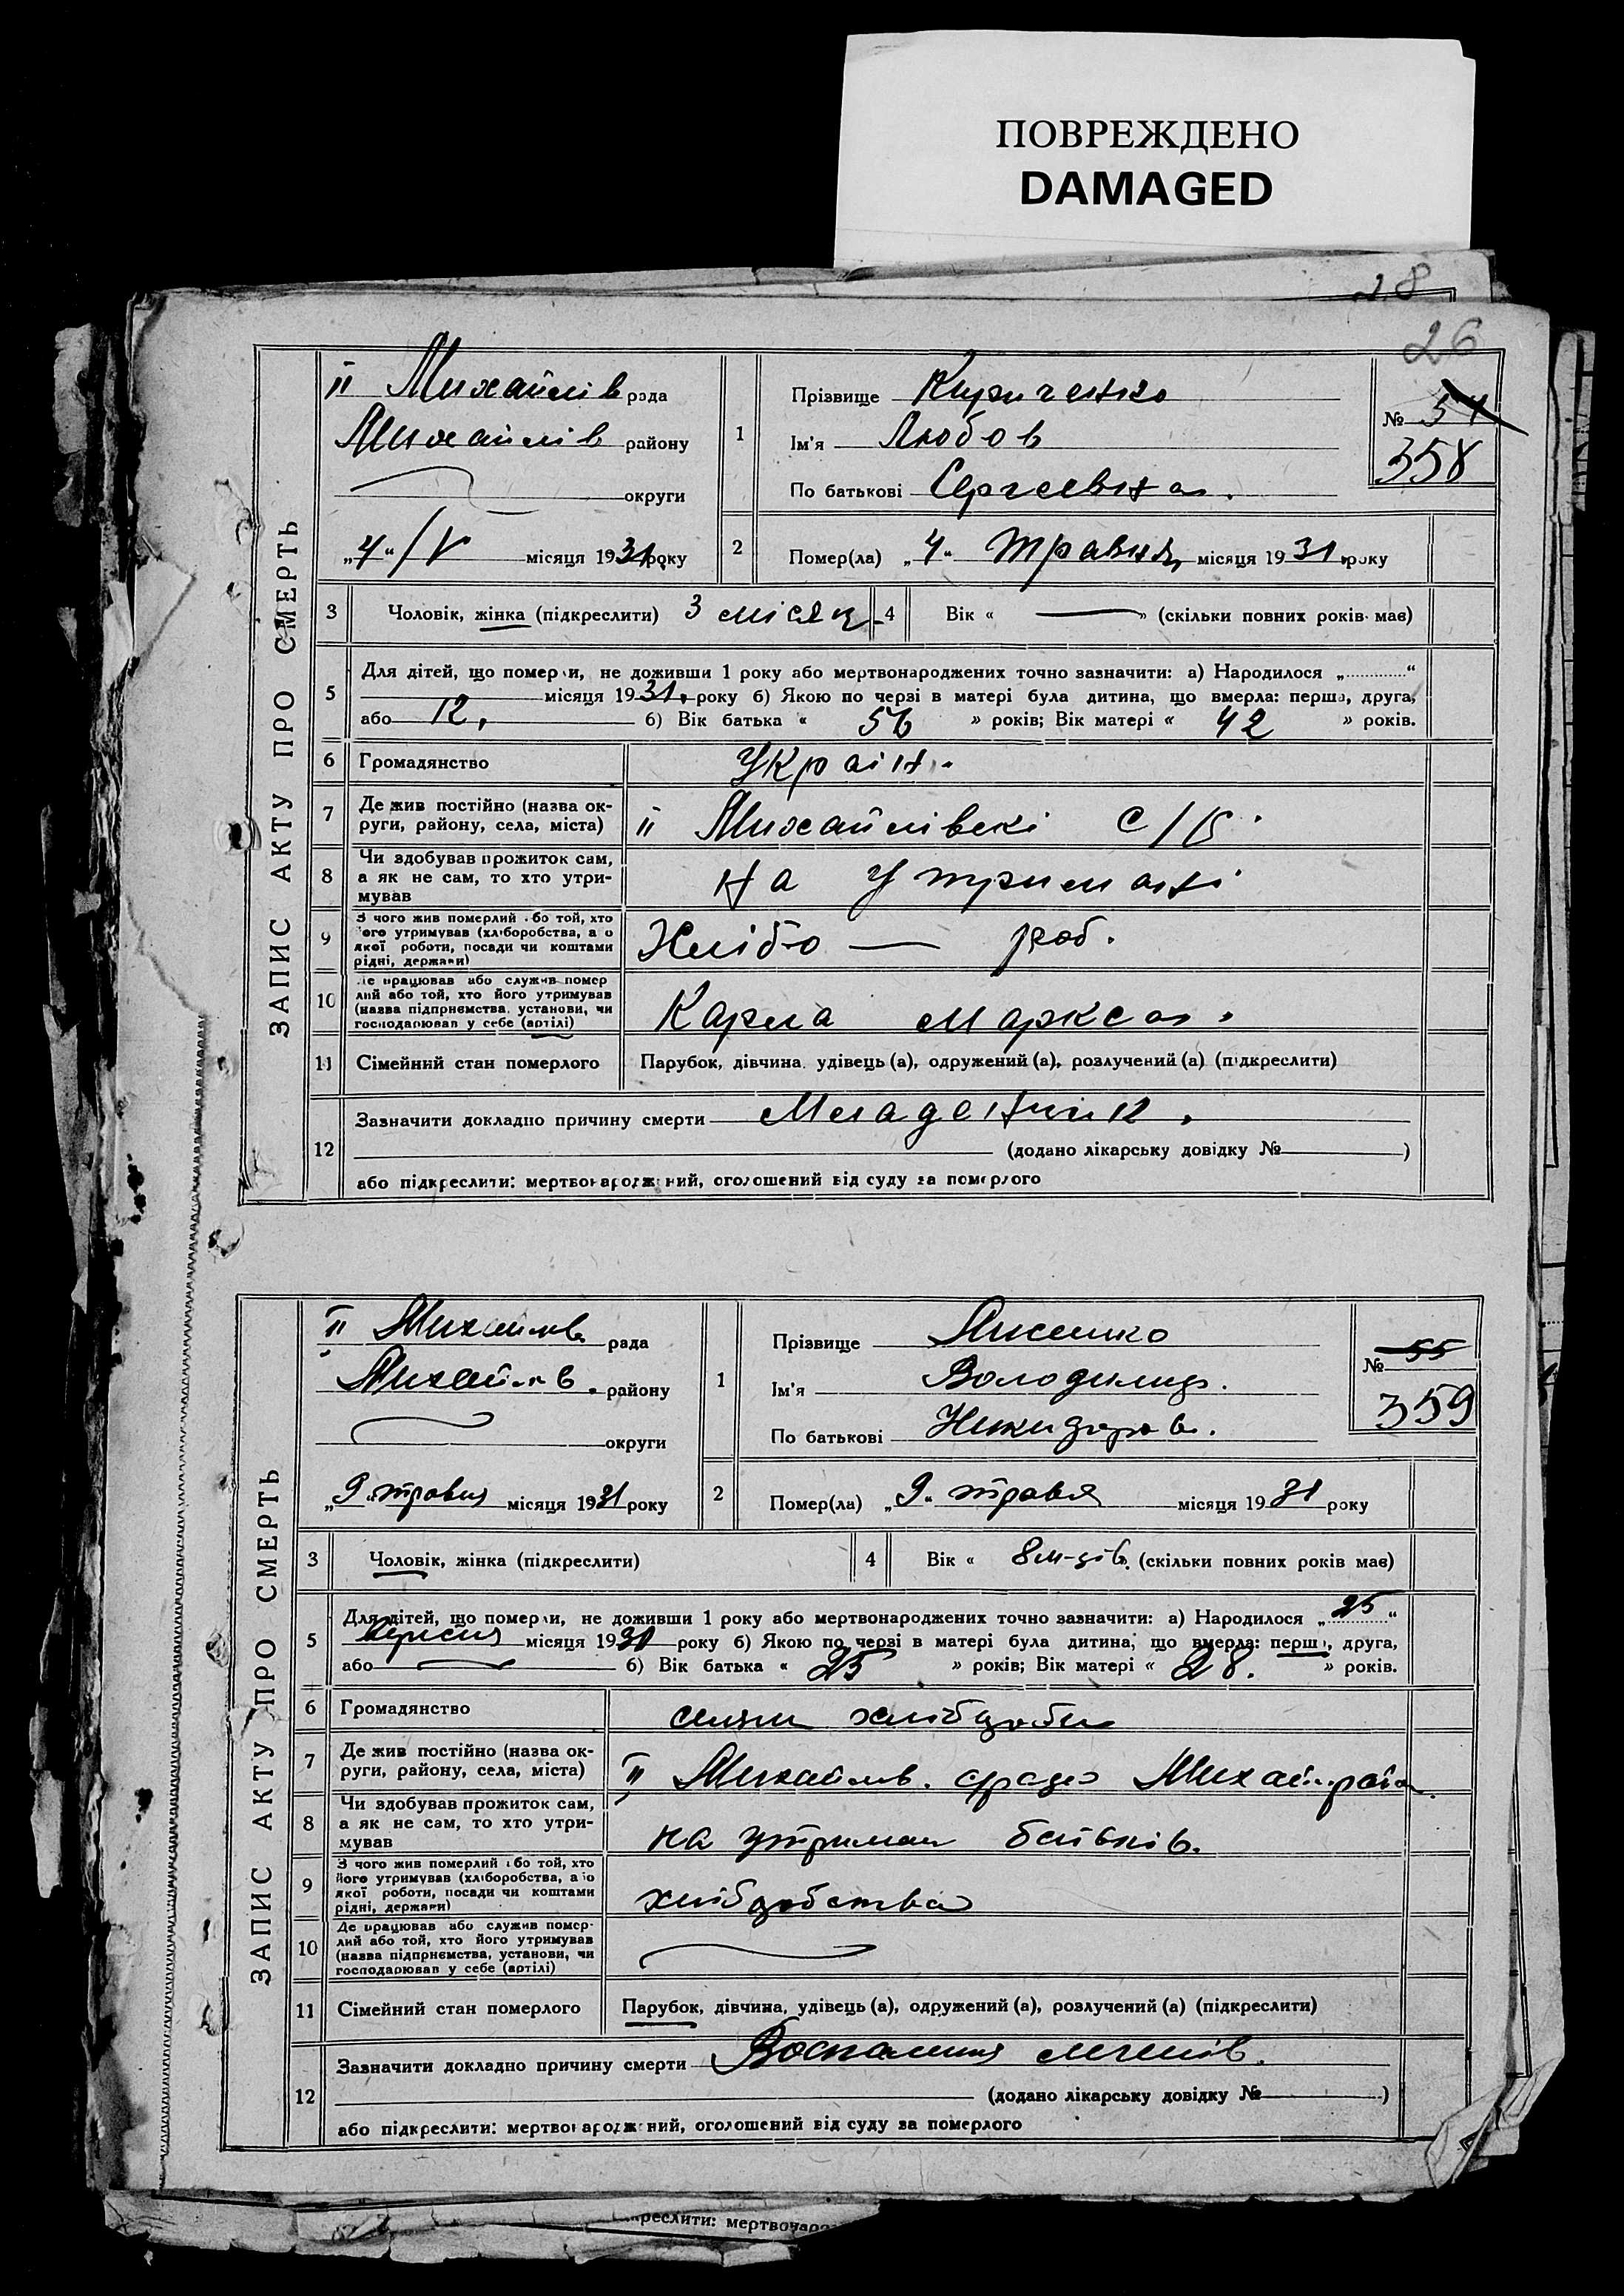 ПОВРЕЖДЕНО
DAMAGED
28
26
ЗАПИС АКТУ ПРО СМЕРТЬ
ІІ Михайлів рада
Михайлів району
округи
„4“/V місяця 1931 року
1
Прізвище Кириченко
Ім'я Любов
По батькові Сергеевна.
№ 54
358
2
Помер(ла) „4“ Травня місяця 1931 року
3 Чоловік, жінка (підкреслити) 3 місяц
4 Вік « — » (скільки повних років має)
5 Для дітей, що померли, не доживши 1 року або мертвонароджених точно зазначити: а) Народилося „ “
місяця 1931 року б) Якою по черзі в матері була дитина, що вмерла: перша, друга,
або 12, б) Вік батька « 56 » років; Вік матері « 42 » років.
6 Громадянство Украін.
7 Де жив постійно (назва округи, району, села, міста) ІІ Михайлівскі с/р.
8 Чи здобував прожиток сам, а як не сам, то хто утримував на утримані
9 З чого жив померлий або той, хто його утримував (хліборобства, або якої роботи, посади чи коштами рідні, держави) Хлібо — роб.
10 Де працював або служив померлий або той, хто його утримував (назва підприємства, установи, чи господарював у себе (артілі) Карла маркса.
11 Сімейний стан померлого Парубок, дівчина, удівець (а), одружений (а), розлучений (а) (підкреслити)
12 Зазначити докладно причину смерти
(додано лікарську довідку № )
або підкреслити: мертвонароджений, оголошений від суду за померлого
ЗАПИС АКТУ ПРО СМЕРТЬ
ІІ Михайлів рада
Михайлів. району
округи
„9“ травня місяця 1931 року
1
Прізвище Лисенко
Ім'я Володимир.
По батькові
№ 55
359
2
Помер(ла) „9“ травя місяця 1931 року
3 Чоловік, жінка (підкреслити)
4 Вік « 8 м-ців. (скільки повних років має)
5 Для дітей, що померли, не доживши 1 року або мертвонароджених точно зазначити: а) Народилося „25“
вересня місяця 1930 року б) Якою по черзі в матері була дитина, що вмерла: перша, друга,
або — б) Вік батька « 25 » років; Вік матері « 28. » років.
6 Громадянство
7 Де жив постійно (назва округи, району, села, міста) ІІ Михайлів. Михайл. району
8 Чи здобував прожиток сам, а як не сам, то хто утримував на утриман батьків.
9 З чого жив померлий або той, хто його утримував (хліборобства, або якої роботи, посади чи коштами рідні, держави) хлібробства
10 Де працював або служив померлий або той, хто його утримував (назва підприємства, установи, чи господарював у себе (артілі)
11 Сімейний стан померлого Парубок, дівчина, удівець (а), одружений (а), розлучений (а) (підкреслити)
12 Зазначити докладно причину смерти Воспалиния легенів.
(додано лікарську довідку № )
або підкреслити: мертвонароджений, оголошений від суду за померлого